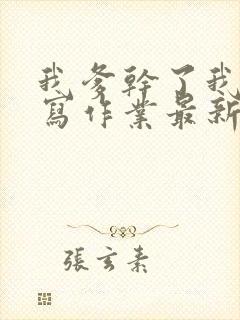 我爹幹了我
寫作業最新
張玄素